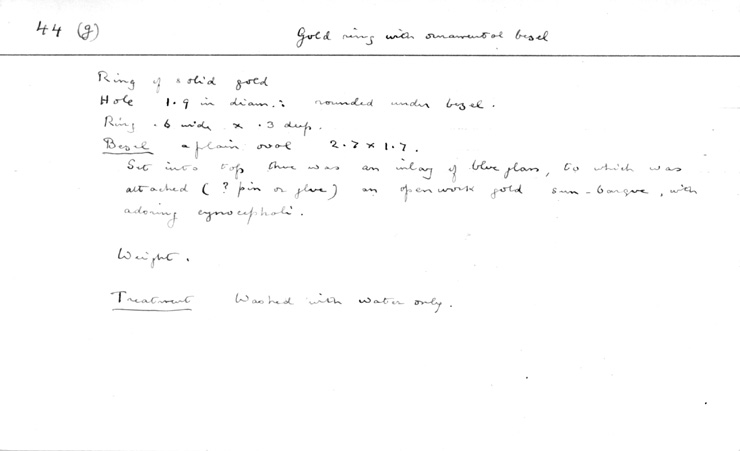 44 (g)
Gold ring with ornamental bezel
Ring of solid gold
Hole 1.9 in diam.: rounded under bezel.
Ring .6 wide x .3 deep.
Bezel a plain oval 2.7 x 1.7.
Set into top there was an inlay of blue glass, to which was
attached (? pin or glue) an openwork gold sun-barque, with
adoring cynocephali.
Weight.
Treatment Washed with water only.